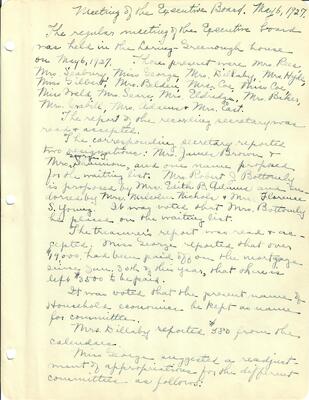 Meeting of the Executive Board. May 6, 1927.
The regular meeting of the Executive board
was held in the Loring-Greenough house
on May 6, 1927. Those present were Mrs
Mrs. Seabury, Miss George, Mrs. Dillaby, Mrs Hyde,
Miss Gilbert, Mrs. Belden, Mrs. Coe, Miss Coe,
Miss Weld, Mrs. Sears, Mrs. Eldridge, Mrs.
Mrs. Mrs. Adams & Mrs. East.
The report of the recording secretary was
read & accepted.
The corresponding secretary reported
two resignations: Mrs. James Brown &
Mrs. and a name proposed
for the waiting list. Mrs Robert J. Bottomly
is proposed by Mrs. Edith B. Adams and en-
dorsed by Mrs. Malcolm Nichols & Mrs. Florence
S. Young. It was voted that Mrs. Bottomly
be placed on the waiting list.
The treasurer's report was read & ac-
cepted. Miss George reported that over
$9,000. had been paid off on the mortgage
since Jan. 30th of the year, that there is
left $3500 to be paid.
It was voted that the present name of
Household economics be kept as name
for committee.
Mrs. Dillaby reported $380 from the
calendars.
Miss George suggested a readjust-
ment of appropriations for the different
committees as follows: